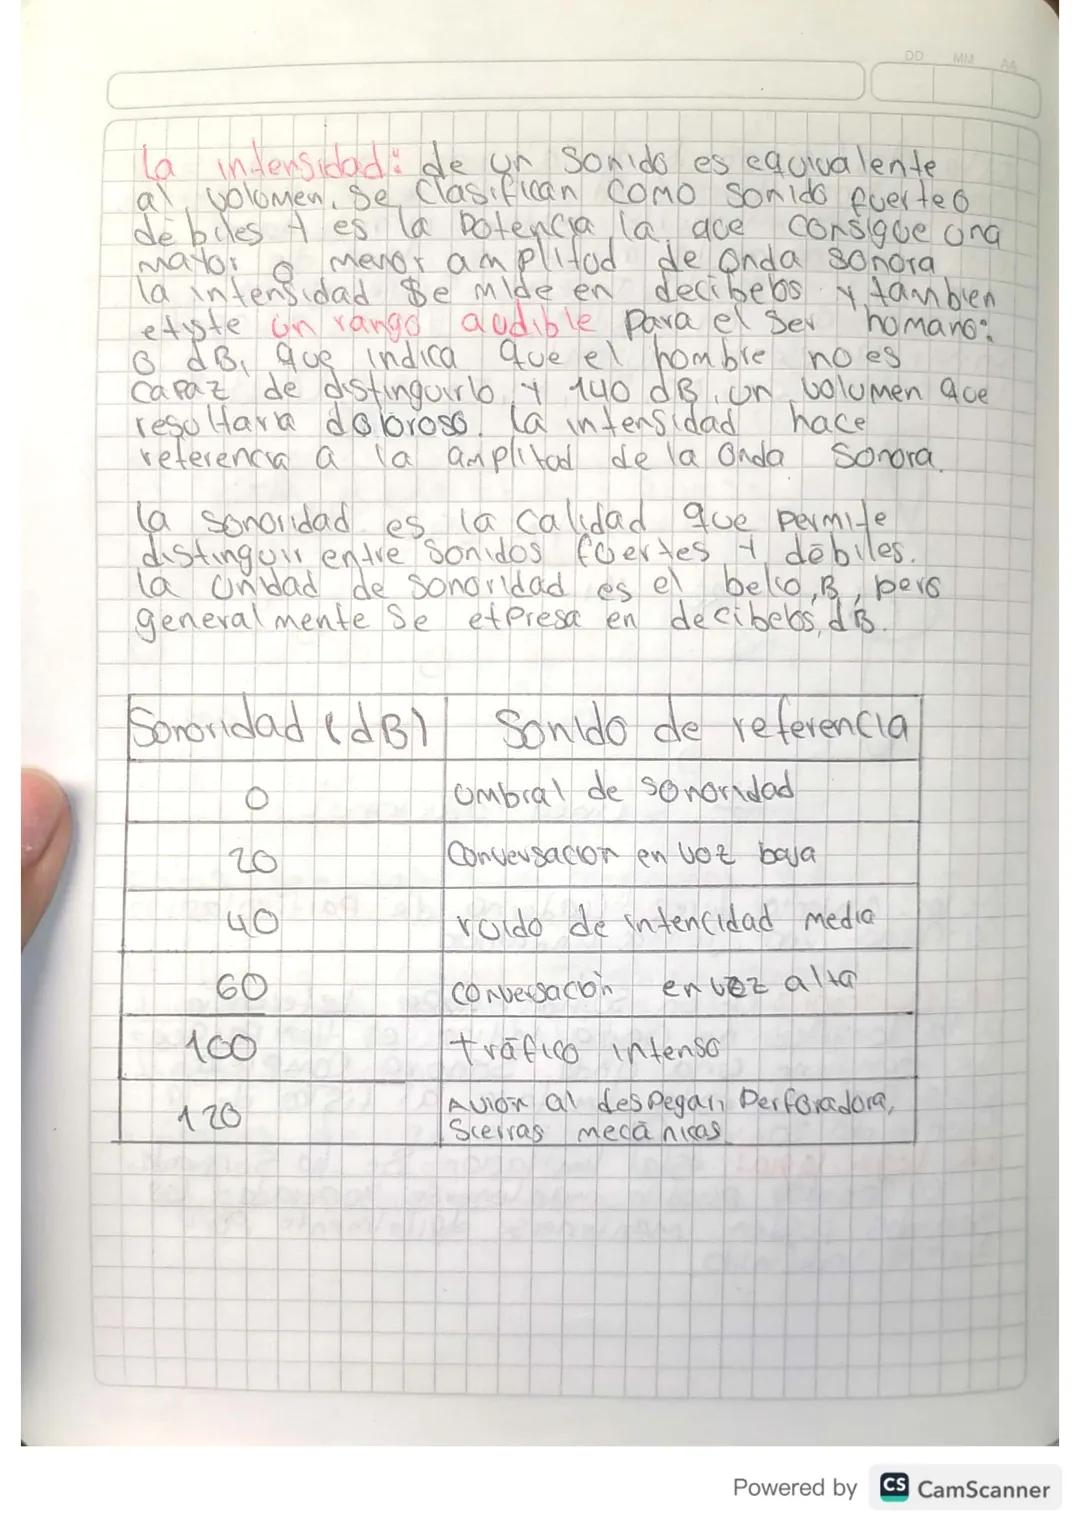 DD MM AA
la intensidad: de un sonido es equivalente
al volomen, se clasifican como sonido fuerte o
débiles y es la potencia la que consigue una
mayor o menor amplitud de onda sonora
la intensidad se mide en decibelos y tambien
existe un rango audible para el ser homano:
0 dB, que indica que el hombre no es
capaz de distinguirlo y 140 dB, un volumen que
resultara doloroso. la intensidad hace
referencia a la amplitud de la onda sonora.
la sonoridad es la calidad que permite
distinguir entre sonidos fuertes y débiles.
la unidad de sonoridad es el belio, B, pero
generalmente se expresa en decibelos, dB.
Sonoridad (dB) Sonido de referencia
0 umbral de sonoridad
20 Conversacion en voz baja
40 ruido de intencidad media
60 conversación en voz alta
100 tráfico intenso
120 Avión al despegar, Perforadora,
Scierras mecánicas
Powered by CS CamScanner